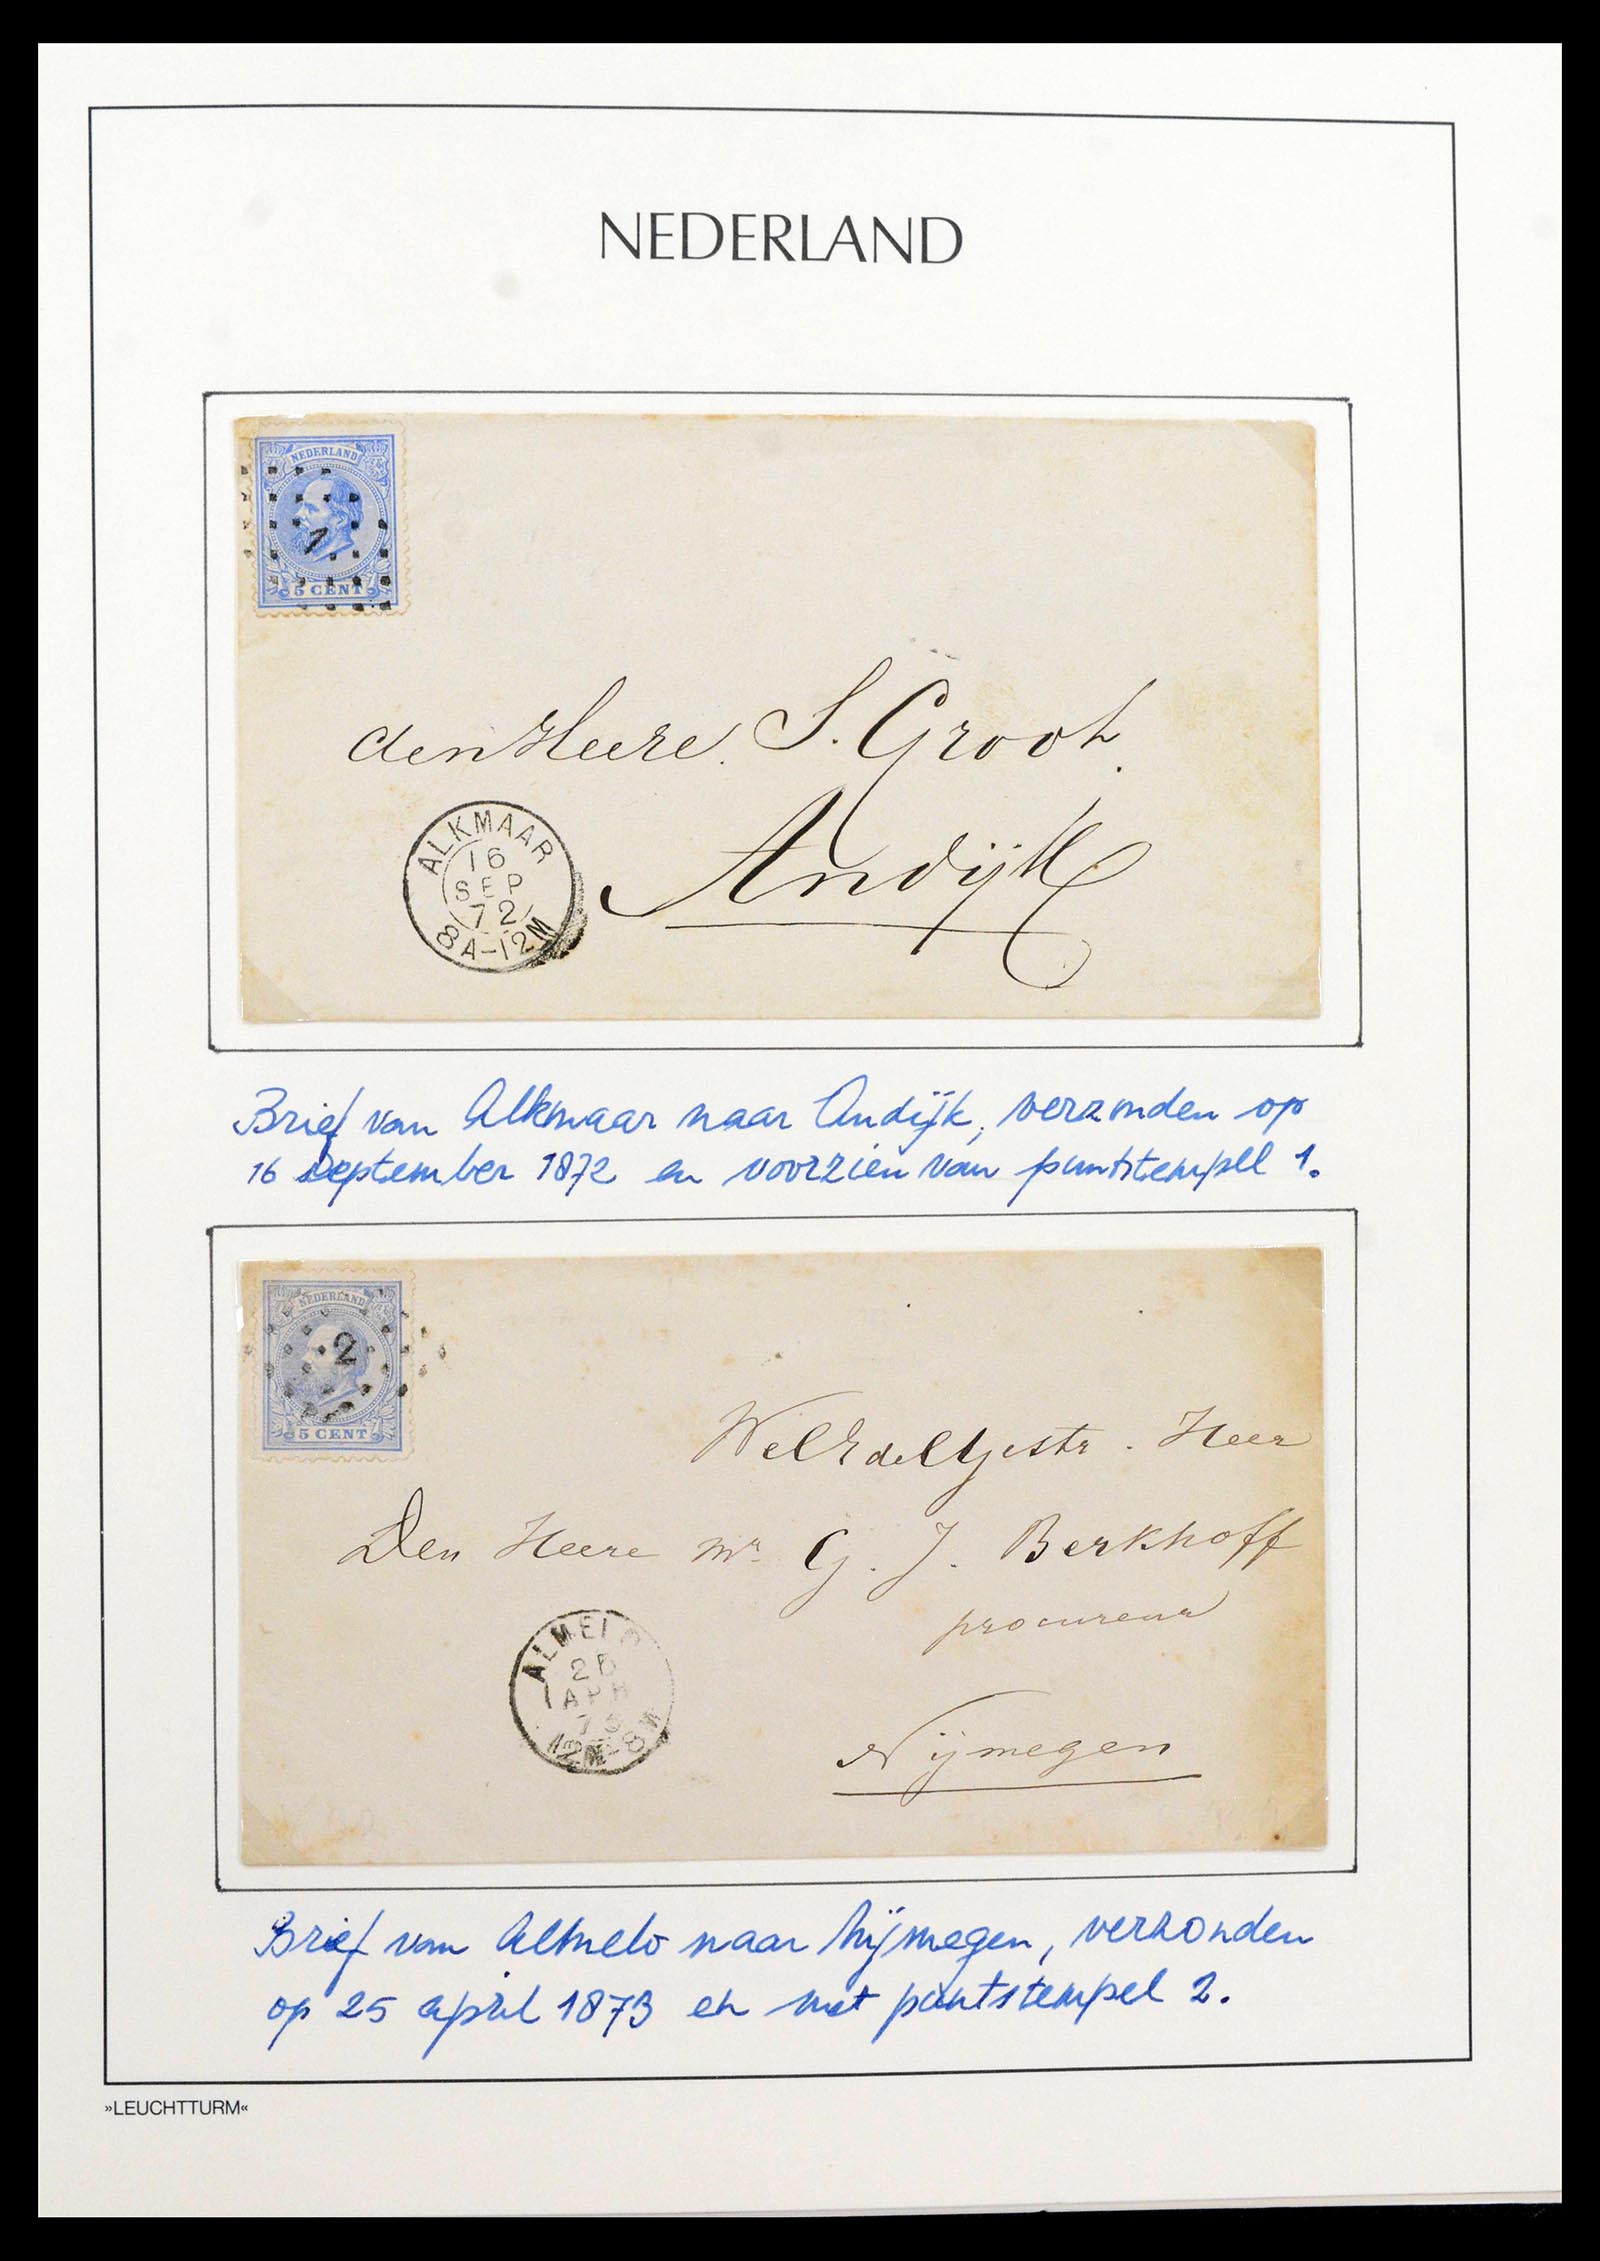 NEDERLAND
NEDERLAND
1
5 CENT
den Heere S. Groot.
Andijk
ALKMAAR
16
SEP
72
8A-12M
Brief van Alkmaar naar Andijk, verzonden op
16 September 1872 en voorzien van puntstempel 1.
NEDERLAND
2
5 CENT
WelEdelGestr. Heer
Den Heere Mr G. J. Berkhoff
procureur
Nijmegen
ALMELO
APR
12M-8M
Brief van Almelo naar Nijmegen, verzonden
op 25 april 1873 en met puntstempel 2.
»LEUCHTTURM«